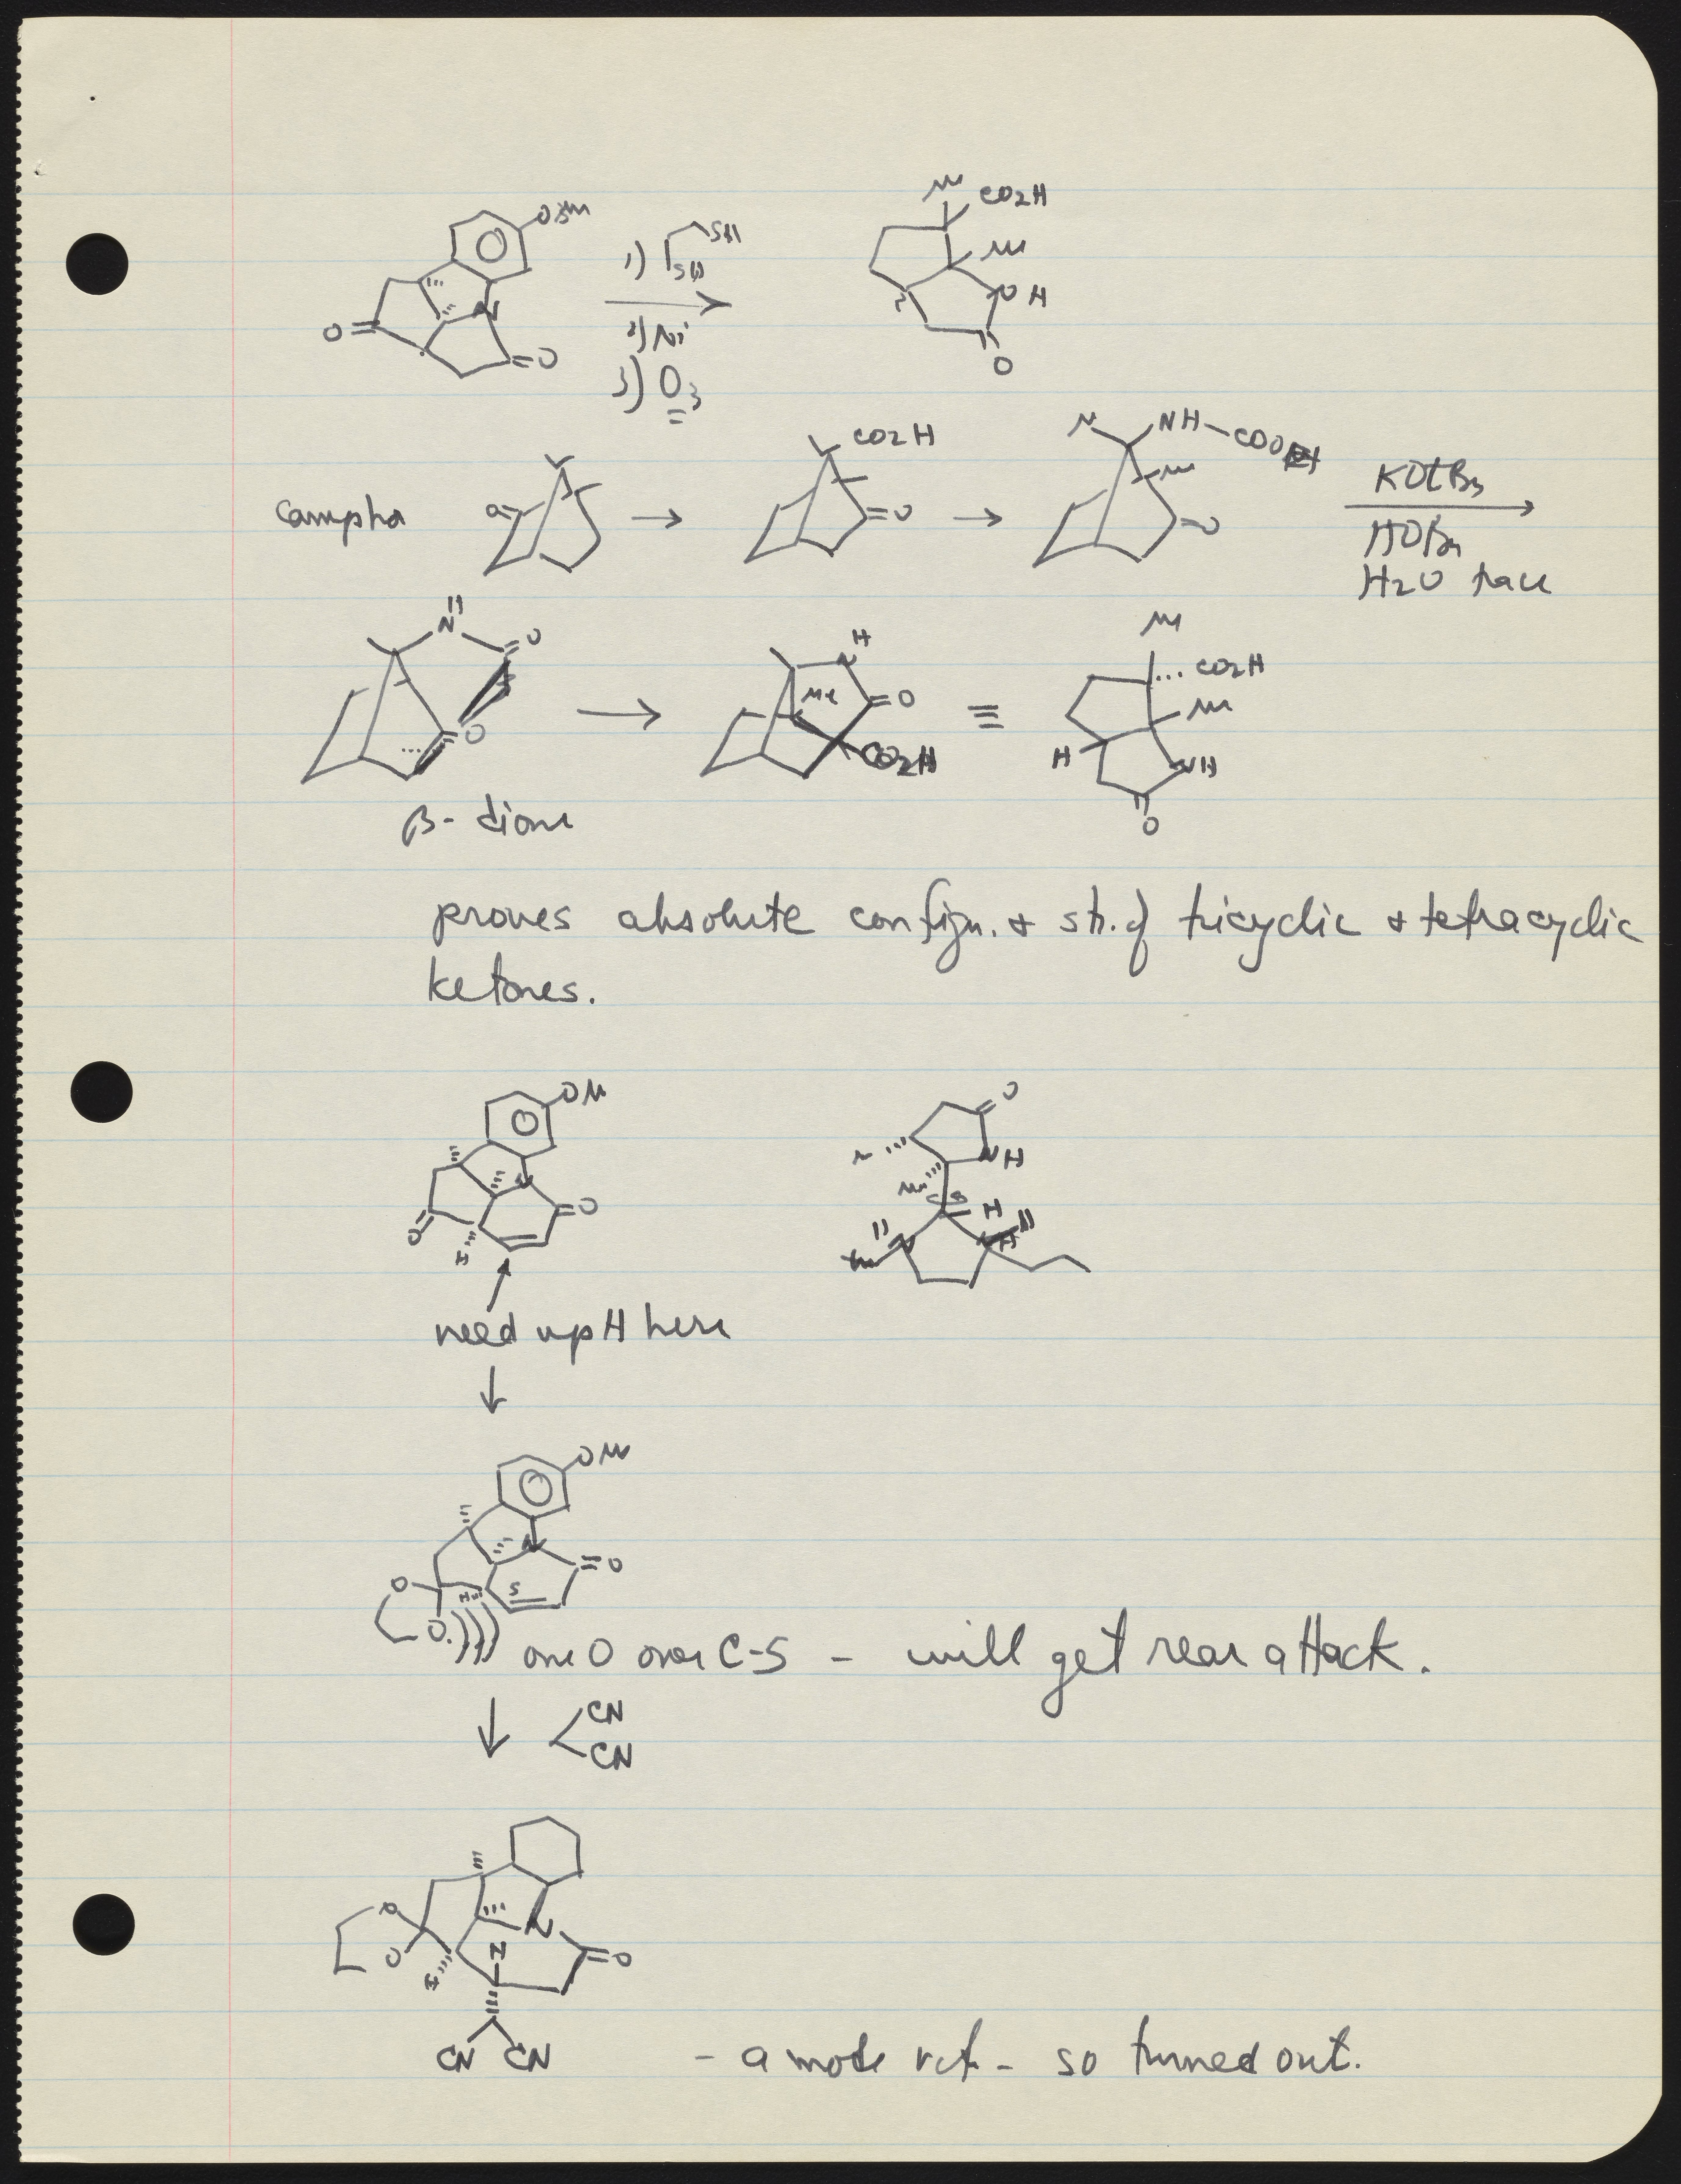 OM
1) SH
SH
2) Ni
3) O3
O
N
O
M CO2H
M
H
O
campho
O
CO2H
O
NH-COOEt
M
O
KOtBu
HOBu
H2O trace
H
N
O
O
β-dione
H
N
Me
O
CO2H
≡
M
CO2H
M
H
NH
O
proves absolute config. & str. of tricyclic & tetracyclic
ketones.
OM
N
O
O
H
O
NH
M
H
N
need up H here
OM
N
O
O
H
5
O
one O over C-5 - will get rear attack.
CN
CN
O
O
N
O
H
CN CN
- a mode rct - so turned out.